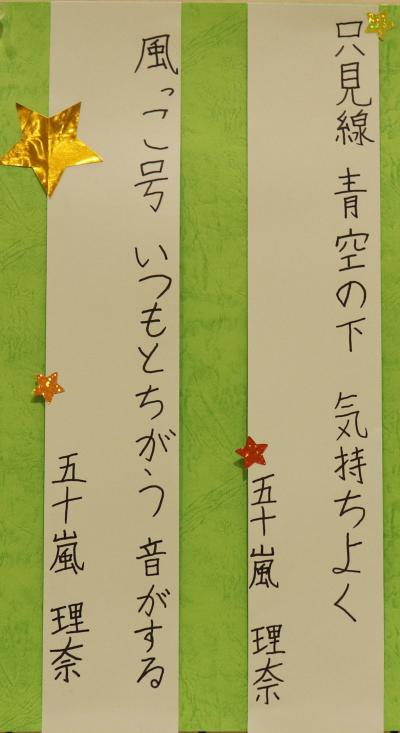 只見線 青空の下 気持ちよく
五十嵐 理奈
風っこ号 いつもとちがう 音がする
五十嵐 理奈